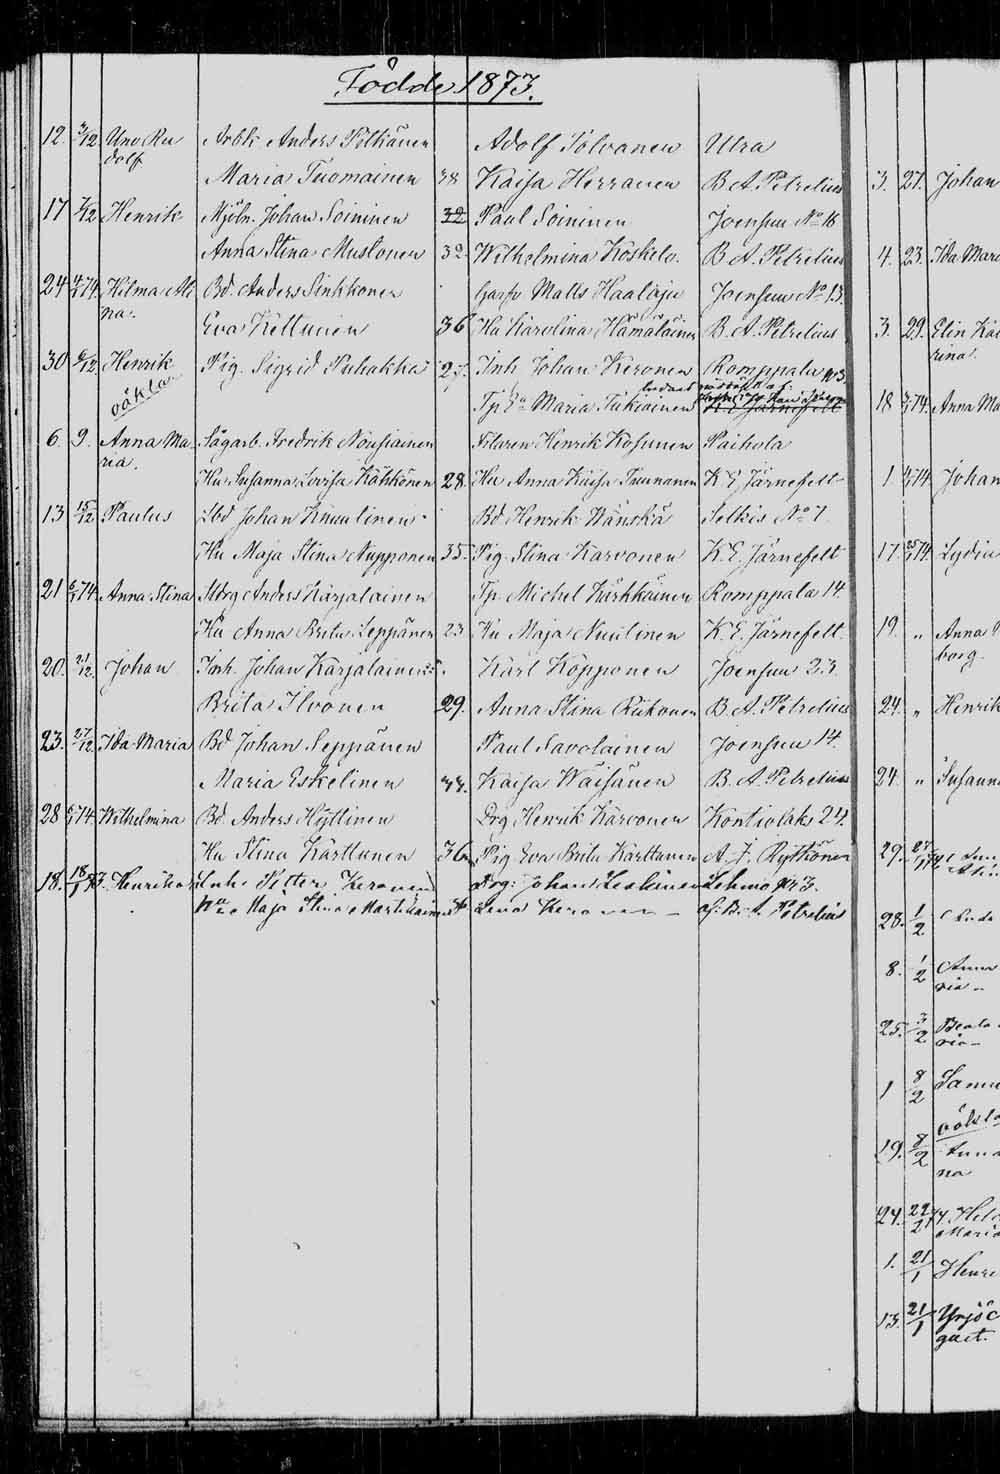 Födde 1873.
12. 3/12. Uno Ru Arbk Anders Pölkänen Adolf Tolvanen Utra
dolf
Maria Tuomainen 38 Kaisa Herranen B. A. Petrelius
17 7/12 Henrik Mjöln. Johan Soininen 32 Paul Soininen Joensuu No 16
Anna Stina Mustonen 32. Wilhelmina Koskelo. B. A. Petrelius
24 4/1 74. Hilma Ali Bd. Anders Sinkkonen Garfv. Matts Haaläja Joensuu No 13.
na.
Eva Kettunen 36 Hu Karolina Hämäläinen B. A. Petrelius
30 6/12. Henrik Pig. Sigrid Puhakka 27. Inh Johan Keronen Romppala No 3.
oäkta
Tp Ea Maria Tukiainen K. E. Järnefelt
6 9. Anna Ma Sågarb. Fredrik Nousiainen Filaren Henrik Kosunen Paihola
ria.
Hu Susanna Lovisa Kähkönen 28. Hu Anna Kaisa Tuunanen K. E. Järnefelt
13 15/12 Paulus Lbd Johan Knuutinen Bd Henrik Wänskä Selkis No 7.
Hu Maja Stina Nupponen 35. Pig. Stina Karvonen K. E. Järnefelt
21 6/1 74. Anna Stina Anders Karjalainen Tp. Michel Kärkkäinen Romppala 14.
Hu Anna Brita Leppänen 23 Hu Maja Nuutinen K. E. Järnefelt.
20. 21/12. Johan Inh. Johan Karjalainen Karl Kopponen Joensuu 23.
Brita Ilvonen 29. Anna Stina Riikonen B. A. Petrelius
23. 27/12. Ida Maria Bd Johan Seppänen Paul Savolainen Joensuu 14.
Maria Eskelinen Kaisa Wäisänen B. A. Petrelius
28 6/1 74. Wilhelmina Bd. Anders Hyttinen Drg Henrik Karvonen Kontiolaks 24.
Hu Stina Karttunen 36. Pig Eva Brita Karttunen A. F. Rytkönen
18. 18/1 Inh. Petter Keronen Drg: Johan Leskinen Lehmo No 3.
Hu: Maja Stina Martikainen Lena Keronen — af: B. A. Petrelius
3. 21. Johan
4. 23. Ida Mari
3. 29. Elin Ka
rina.
18 74. Anna Ma
1 74. Johan
17. 74. Lydia
19. " Anna
borg.
24. " Henrik
24. " Susann
29. 27/1
28. 1/2
8. 1/2 Anna
ria -
25. 3/2 Beata
ria -
1 8/2 Samu
19. 8/2 oäkta
na
24. 22/2
Maria
1. 21/1 Henri
13. 21/1 Yrjö
gust.